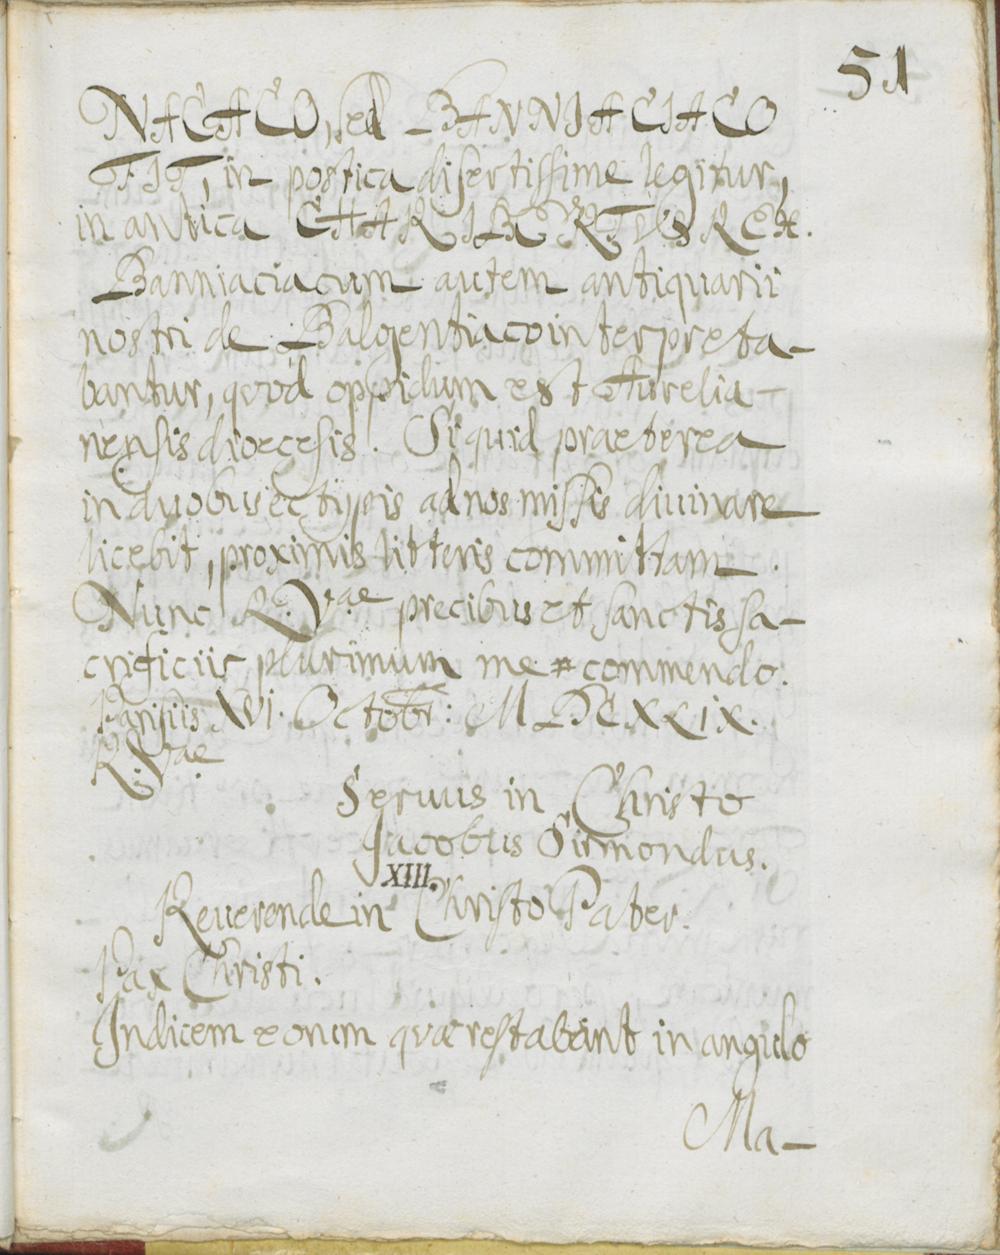 51
NACACO, sed BANNIACIACO
FIT, in postica disertissime legitur,
in antica CHARIBERTVS REX.
Banniaciacum autem antiquarii
nostri de Balgentiaco interpreta-
bantur, quod oppidum est Aurelia-
nensis dioecesis. Si quid praeterea
in duobus ectypis ad nos missis diuinare
licebit, proximis litteris committam.
Nunc R. Vae precibus et sanctis sa-
crificiis plurimum me commendo.
Parisiis XVI. Octobr: MDCXXIX.
R. Vae
Seruus in Christo
Jacobus Sirmondus.
XIII.
Reuerende in Christo Pater.
Pax Christi.
Indicem eorum quae restabant in angulo
Ma-